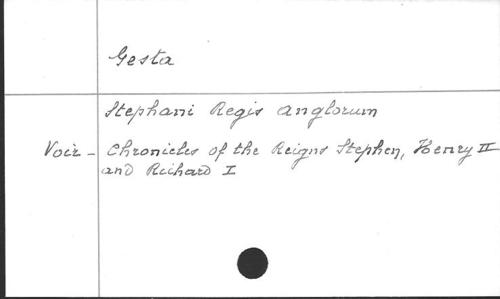 Gesta
Stephani Regis Anglorum
Voir - Chronicles of the Reigns Stephen, Henry II
and Richard I